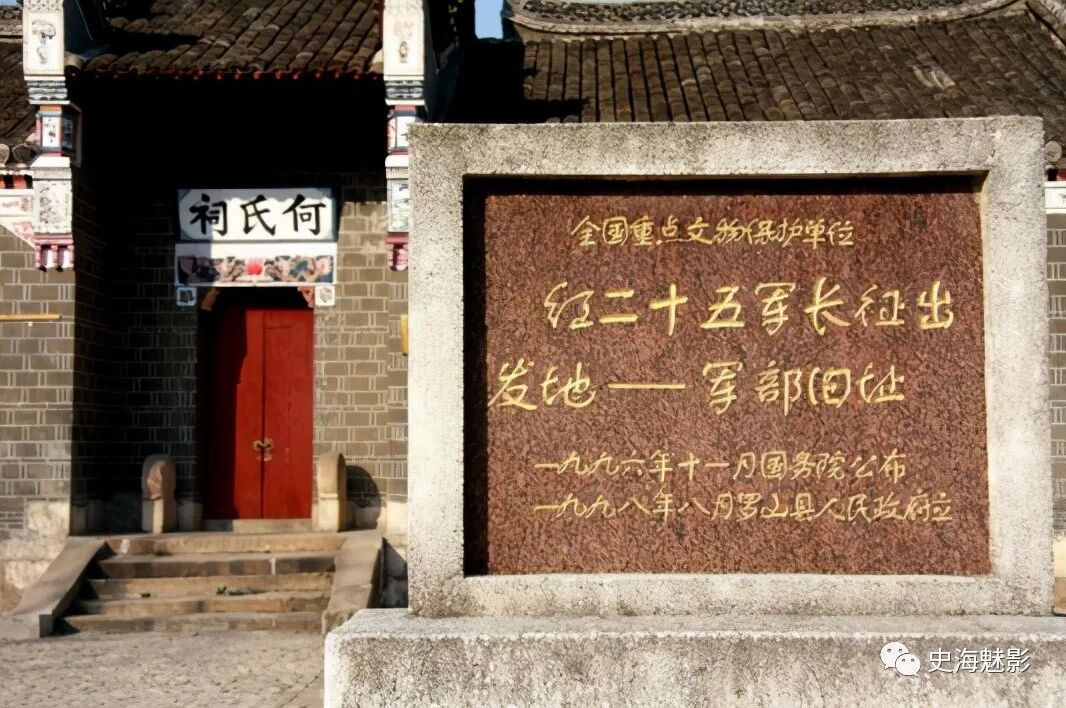 祠氏何
全国重点文物保护单位
红二十五军长征出
发地——军部旧址
一九九六年十一月国务院公布
一九九八年八月罗山县人民政府立
史海魅影